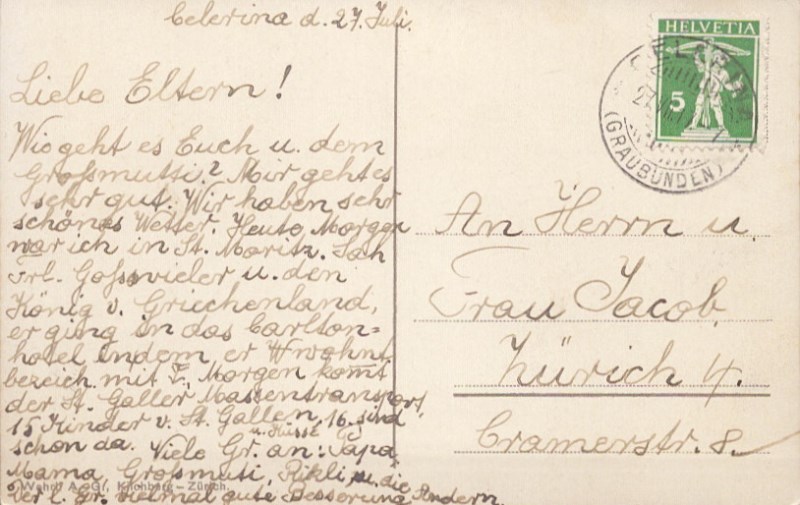 Celerina d. 27. Juli.
Liebe Eltern!
Wie geht es Euch u. dem
Großmutti? Mir geht es
sehr gut. Wir haben sehr
schönes Wetter. Heute Morgen
war ich in St. Moritz. Sah
Frl. Gossweiler u. den
König v. Griechenland,
er ging in das Carlton=
hotel indem er wohnt.
Morgen komt
der St. Galler Massentransport,
15 Kinder v. St. Gallen, 16. sind
schon da. Viele Gr. an: Papa
u. Küsse
Mama, Grosmuti, Rikli u. die
Andern
der l. Gr. vielmal gute Besserung
Wehrli A.-G., Kilchberg – Zürich.
HELVETIA
5
(GRAUBÜNDEN)
An Herrn u.
Frau Jacob,
Zürich 4.
Cramerstr. 8.